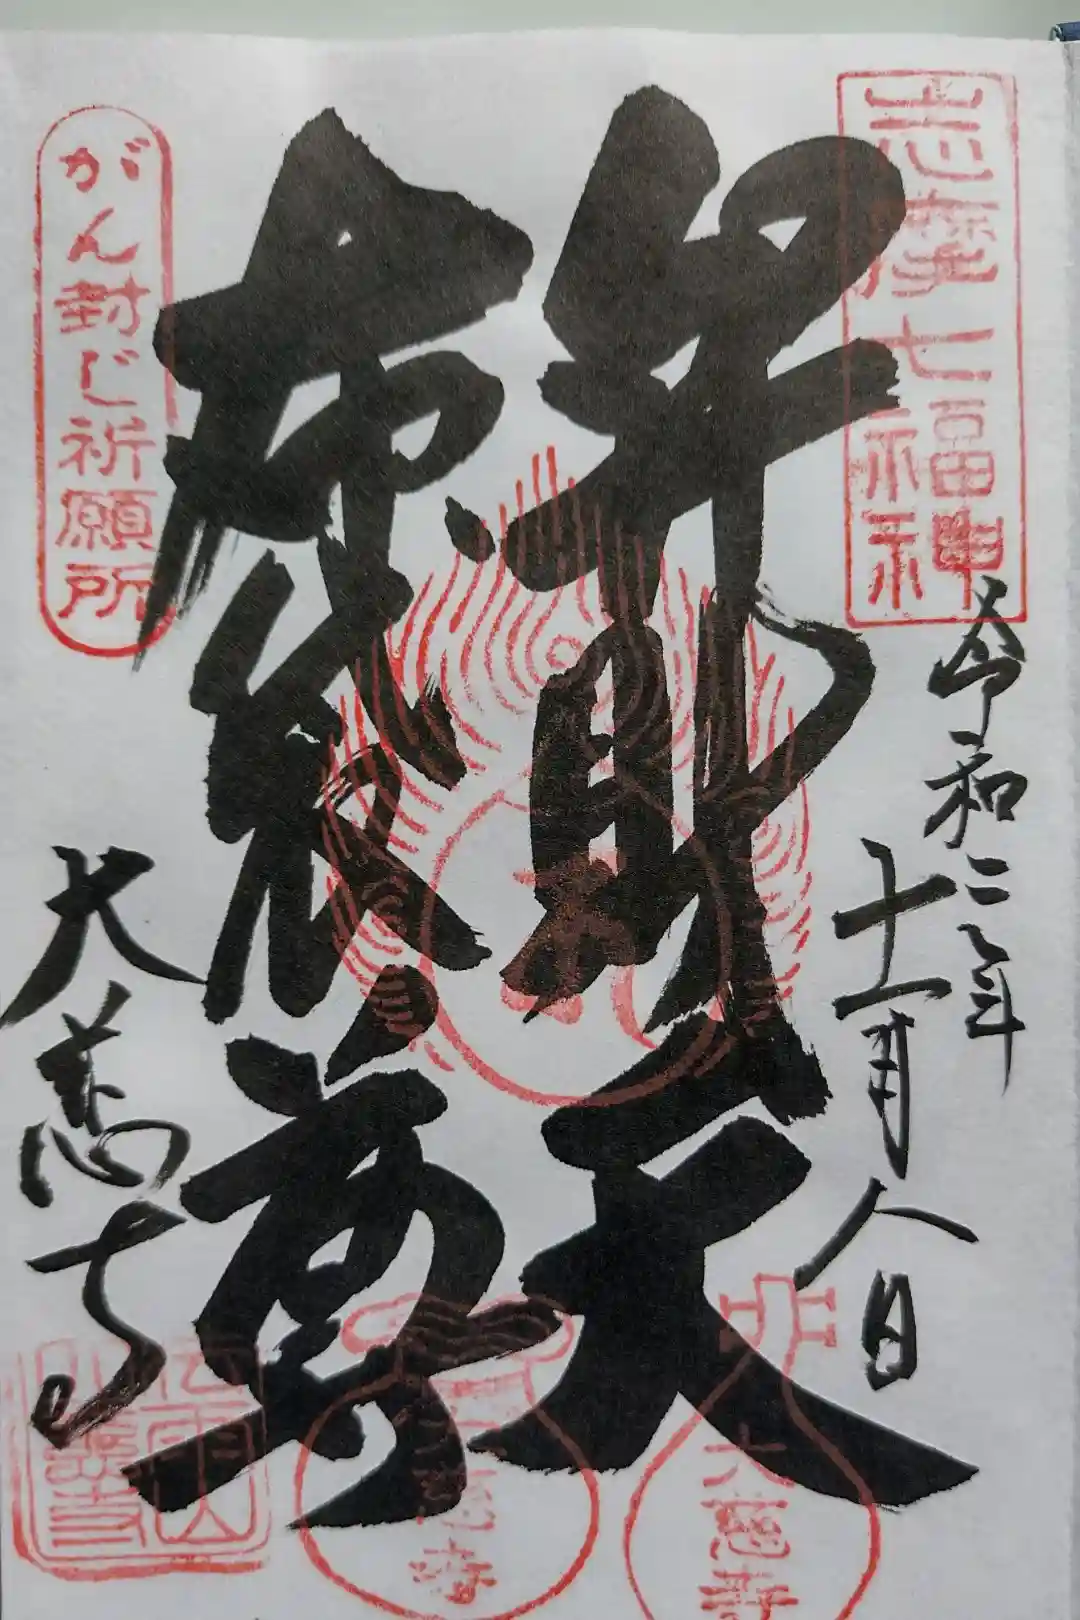 志摩七福神
令和二年
十一月八日
弁財天
布袋尊
がん封じ祈願所
大慈寺
大慈寺
大慈寺